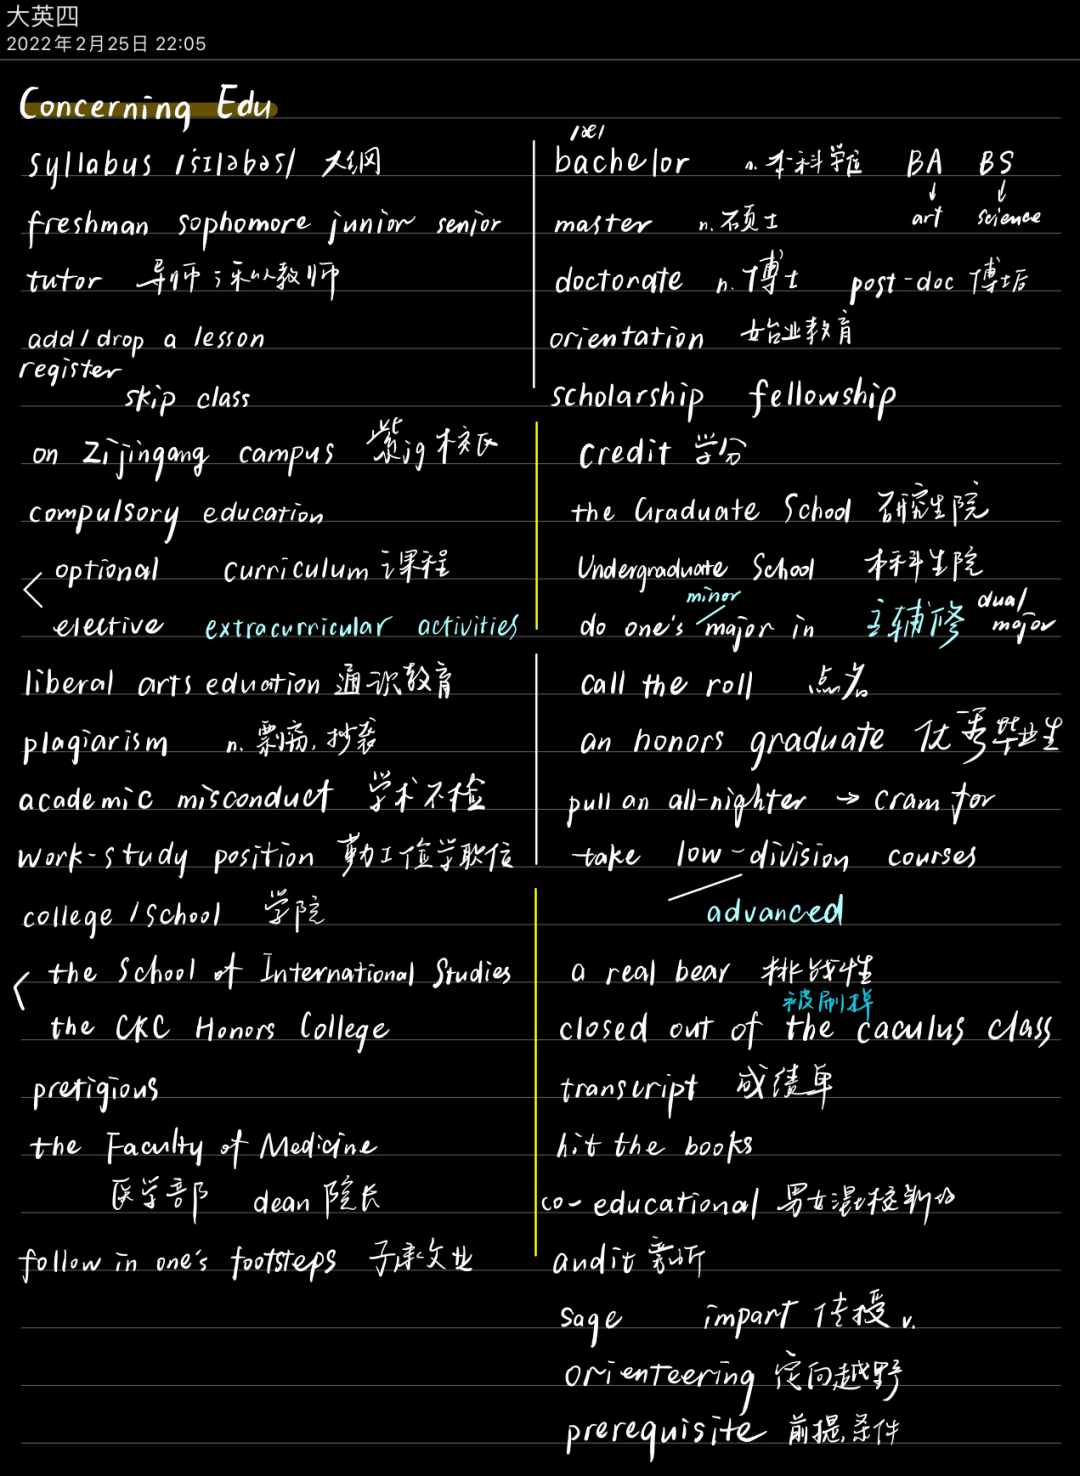 大英四
2022年2月25日 22:05
Concerning Edu
syllabus /sɪləbəs/ 大纲
freshman sophomore junior senior
tutor 导师;私人教师
add/drop a lesson
register
skip class
on Zijingang campus 紫jg校区
compulsory education
optional curriculum 课程
elective extracurricular activities
liberal arts eduation 通识教育
plagiarism n. 剽窃,抄袭
academic misconduct 学术不检
work-study position 勤工俭学职位
college / School 学院
the School of International Studies
the CKC Honors College
pretigious
the Faculty of Medicine
医学部 dean 院长
follow in one's footsteps 子承父业
/æ/
bachelor n. 本科学位 BA BS
art science
master n. 硕士
doctorate n. 博士 post-doc 博士后
orientation 始业教育
scholarship fellowship
credit 学分
the Graduate School 研究生院
Undergraduate School 本科生院
minor
do one's major in 主辅修 dual major
call the roll 点名
an honors graduate 优秀毕业生
pull an all-nighter → cram for
take low-division courses
advanced
a real bear 挑战性
被刷掉
closed out of the caculus class
transcript 成绩单
hit the books
co-educational 男女混校制的
audit 旁听
sage impart 传授 v.
orienteering 定向越野
prerequisite 前提,条件